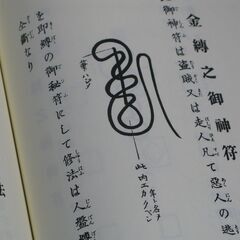 金縛之御神符
御神符は盗賊又は走人凡て惡人の逃
年ト名ヲ
此内エカクベシ
筆ハジメ
を即縛の御秘符にして修法は人
なり
法